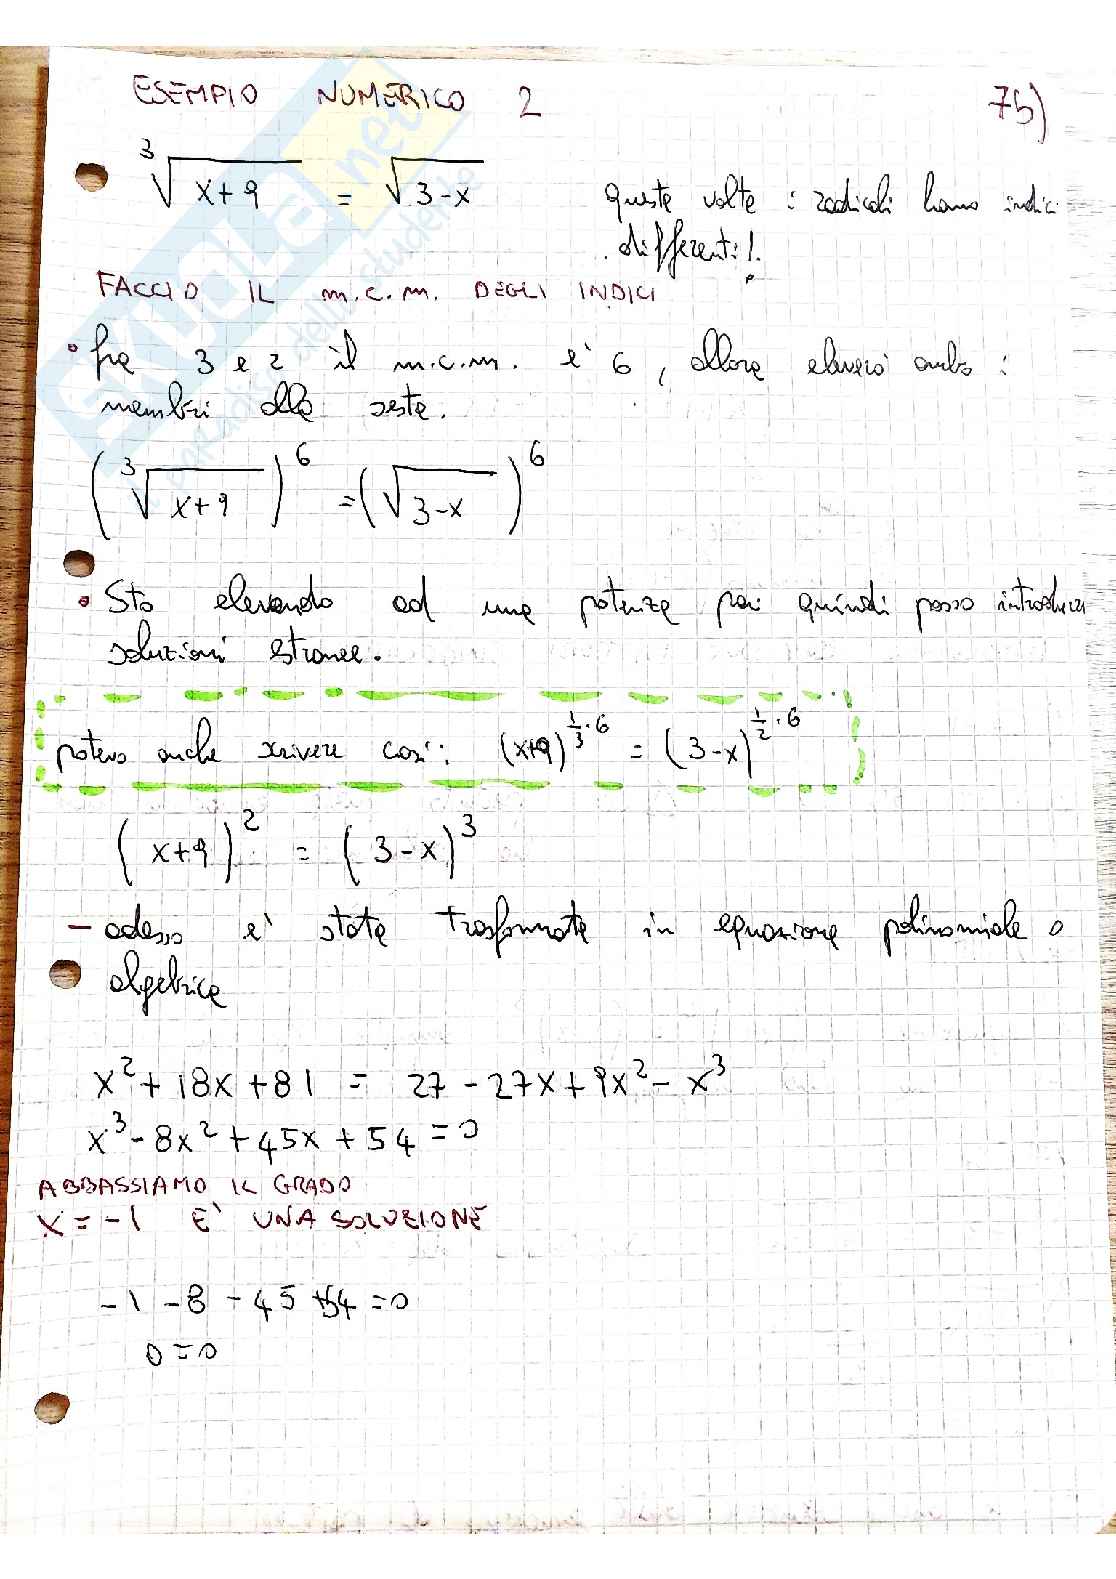 ESEMPIO NUMERICO 2 75)
∛(x+9) = √(3-x)
Queste volte i radicali hanno indici
differenti!
FACCIO IL m.c.m. DEGLI INDICI
• fra 3 e 2 il m.c.m. e' 6, allora eleverò ambo i
membri alla sesta.
(∛(x+9))^6 = (√(3-x))^6
• Sto elevando ad una potenza pari quindi posso introdurre
soluzioni estranee.
potevo anche scrivere così: (x+9)^(1/3·6) = (3-x)^(1/2·6)
(x+9)^2 = (3-x)^3
- adesso e' stata trasformata in equazione polinomiale o
algebrica
x^2+18x+81 = 27-27x+9x^2-x^3
x^3-8x^2+45x+54=0
ABBASSIAMO IL GRADO
x=-1 E' UNA SOLUZIONE
-1-8-45+54=0
0=0
skuola.net